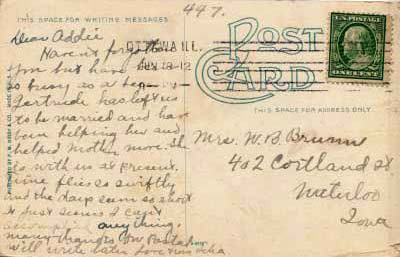 447.
THIS SPACE FOR WRITING MESSAGES
POST CARD
OTTAWA ILL.
JUN 18-12
U.S. POSTAGE
ONE CENT
THIS SPACE FOR ADDRESS ONLY
Dear Addie
Haven't forgotten
you but have been
so busy as a bee
Gertrude has left us
to be married and have
been helping her and
helped Mother move. She
is with us at present.
Time flies so swiftly
and the days seem so short
it just seems I can't
accomplish anything.
Many thanks for Postal
will write later Love from
Mrs. W. B. Brunn
402 Cortland St
Waterloo
Iowa